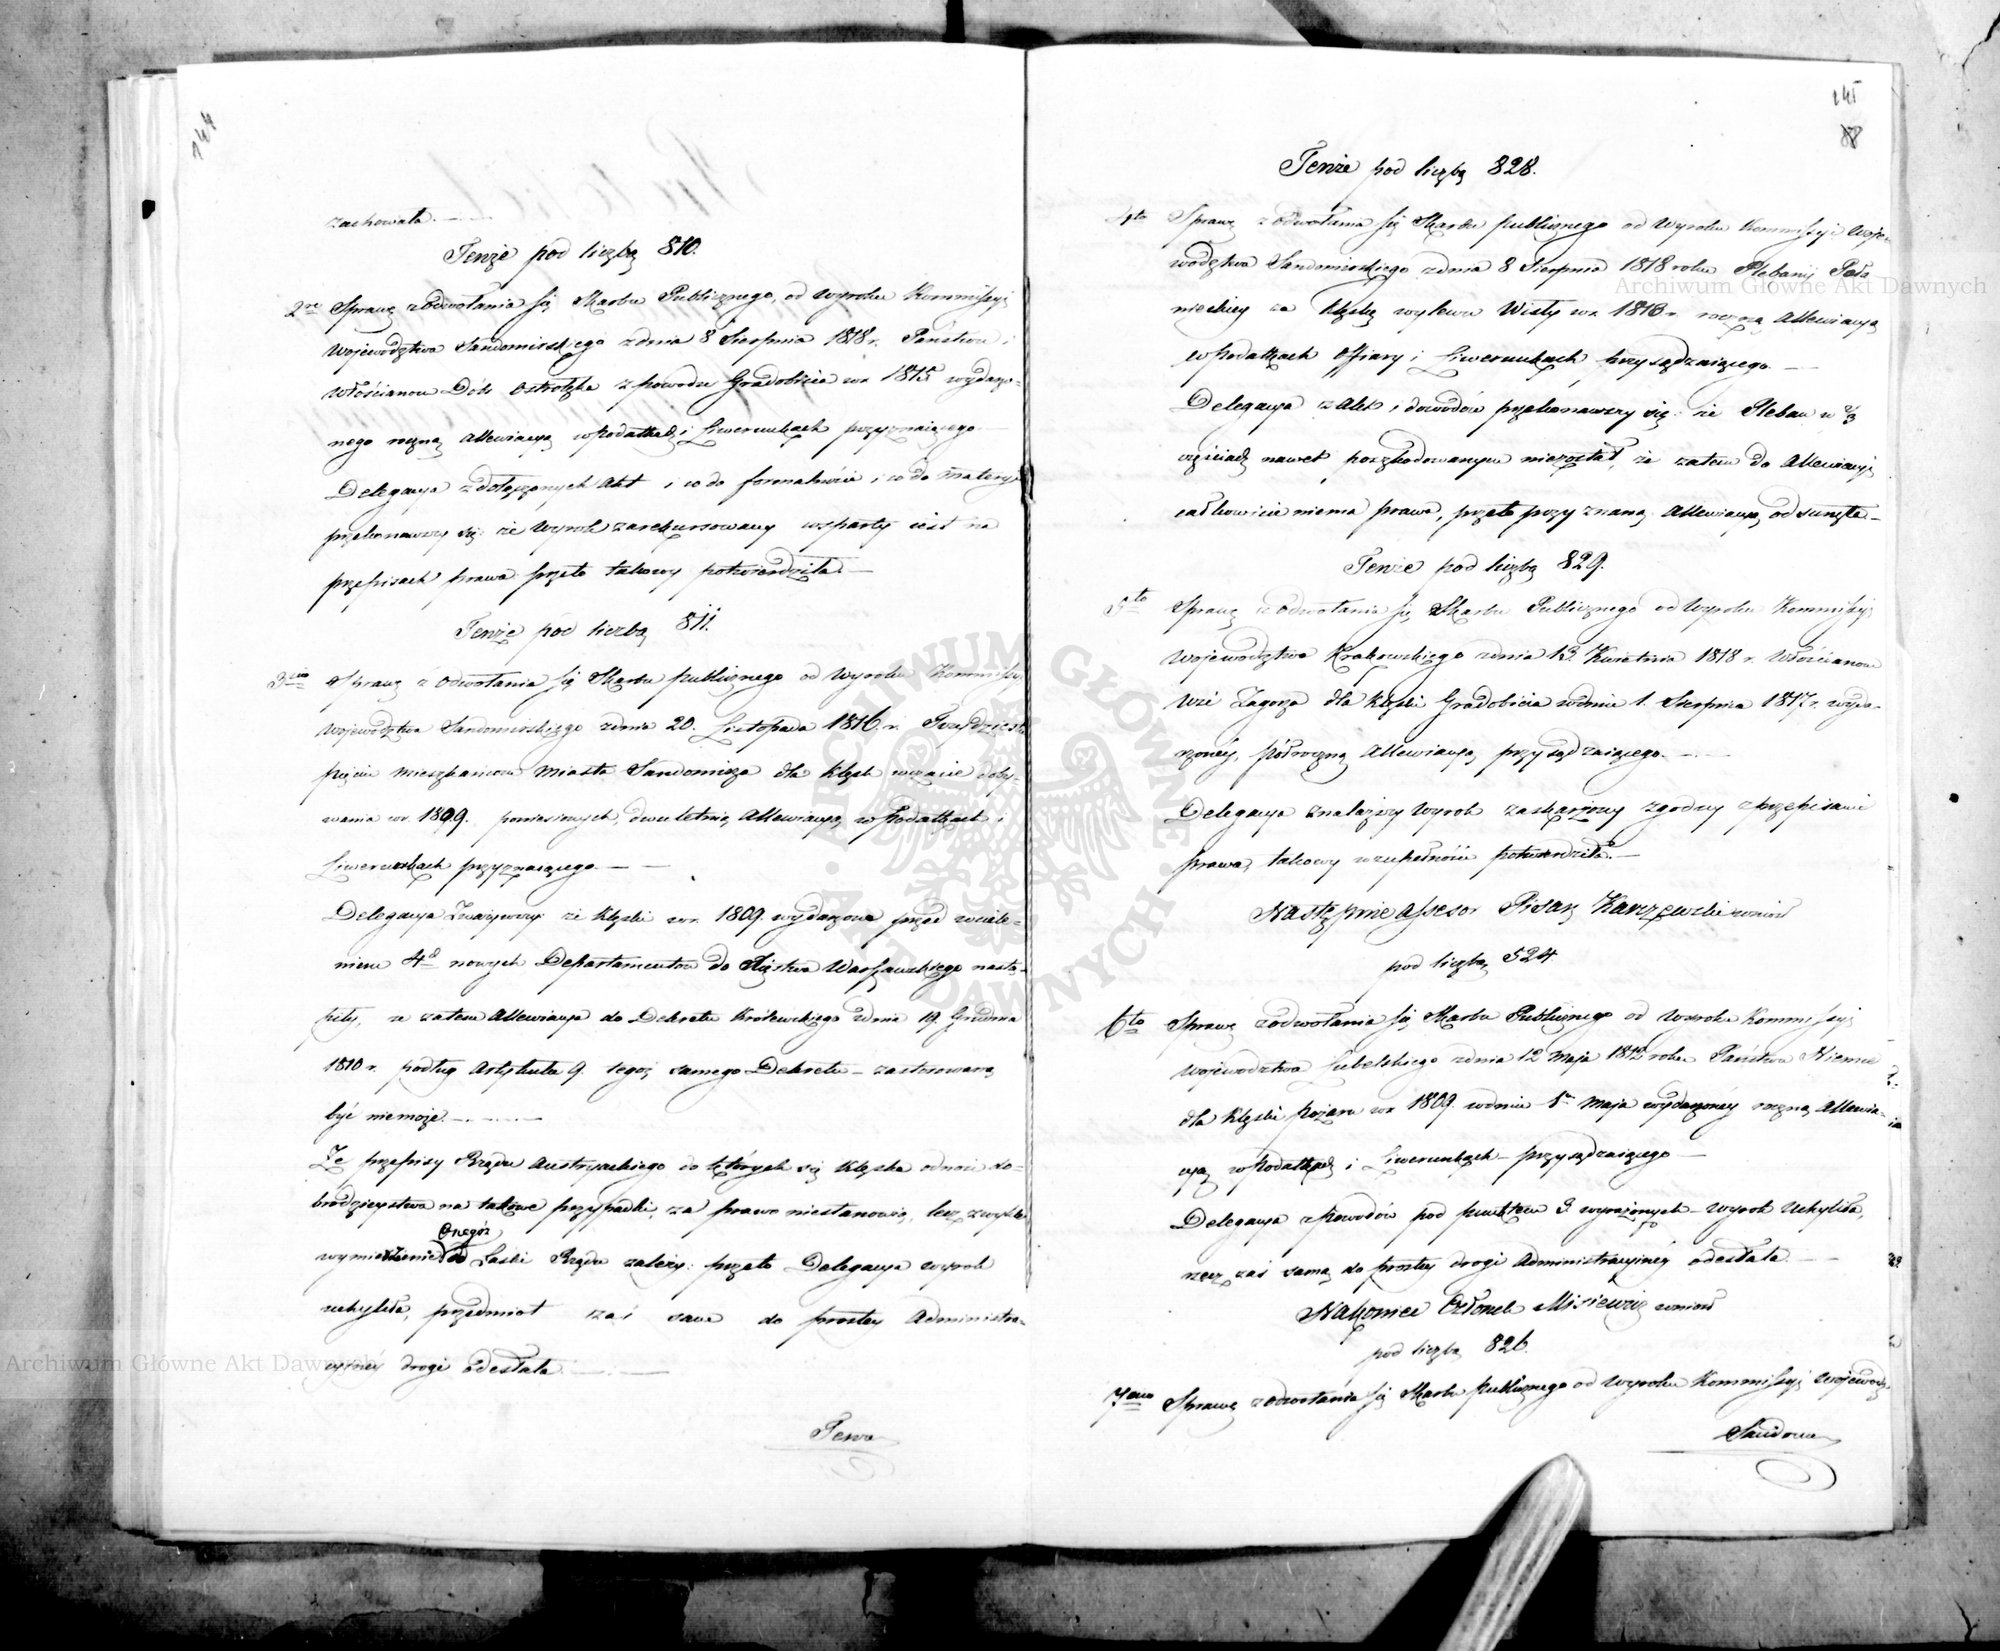 244
zachowała. —
Tenże pod liczbą 810.
2re Sprawę z Odwołania się Skarbu Publicznego, od wyroku Kommissyi
Województwa Sandomirskiego z dnia 8 Sierpnia 1818 r. Państwu i
Włościanom Dóbr Ostrołęka z powodu Gradobicia w r. 1815 wydarzo-
nego roczną allewiacyą w Podatkach i Liwerunkach przyznaiącego —
Delegacya z dołączonych Akt i co do formalności i co do materyi
przekonawszy się: że Wyrok zarekursowany wsparty iest na
przepisach prawa przeto takowy potwierdziła. —
Tenże pod liczbą 811.
3cio Sprawę z Odwołania się Skarbu publicznego od Wyroku Kommissyi
Województwa Sandomirskiego z dnia 20. Listopada 1816. r. Trzydziestu
pięciu mieszkańcom miasta Sandomirza dla klęsk w czasie doby-
wania w r. 1809. poniesionych, dwuletnią Allewiacyą w Podatkach i
Liwerunkach przyznaiącego. —
Delegacya Zważywszy: że klęski w r. 1809. wydarzone przed wciele-
niem 4ch nowych Departamentów do Xięstwa Warszawskiego nastą-
piły, że zatem Allewiacya do Dekretu Królewskiego z dnia 19. Grudnia
1810 r. podług Artykułu 9. tegoż samego Dekretu — zastosowaną
być niemoże. —
Że przepisy Rządu Austryackiego do których się klęska odnosi do-
brodzieystwa na takowe przypadki, za prawo niestanowią, lecz zwykle
wymierzenie Onegoż od Łaski Rządu zależy: przeto Delegacya wyrok
uchyliła, przedmiot zaś sam do prostey Administra-
cyiney drogi odesłała. —
Tenże
245
88
Tenże pod liczbą 828.
4to Sprawę z Odwołania się Skarbu publicznego od Wyroku Kommissyi Woje-
wództwa Sandomirskiego z dnia 8 Sierpnia 1818 roku Plebanij Poła
nieckiey za klęskę wylewu Wisły w r. 1813 r. roczną Allewiacyą
w Podatkach Ofiary i Liwerunkach przysądzaiącego. —
Delegacya z Akt i dowodów przekonawszy się: że Pleban w 2/3
częściach nawet poszkodowanym niezostał, że zatem do Allewiacyi
całkowicie niema prawa, przeto przyznaną Allewiacyą odsunęła —
Tenże pod liczbą 829.
5to Sprawę z Odwołania się Skarbu Publicznego od Wyroku Kommissyi
Województwa Krakowskiego z dnia 13. Kwietnia 1818 r. Włościanom
wsi Zagorza dla klęski Gradobicia w dniu 1. Sierpnia 1817. r. wyda-
rzoney, półroczną Allewiacyą przysądzaiącego. —
Delegacya znalazłszy Wyrok zaskarżony zgodny z przepisami
prawa, takowy w zupełności potwierdziła. —
Następnie Assesor Pisarz Karczewski wniósł
pod liczbą 524.
6to Sprawę z odwołania się Skarbu Publicznego od Wyroku Kommissyi
Województwa Lubelskiego z dnia 12 Maja 1812 roku Państwu Niemce
dla klęski pożaru w r. 1809. w dniu 1. Maja wydarzoney roczną Allewia-
cyą w Podatkach i Liwerunkach — przysądzaiącego —
Delegacya z Powodów pod punktem 3. wyrażonych — wyrok uchyliła,
rzecz zaś samą do prostey drogi Administracyiney odesłała. —
Nakoniec Członek Misiewicz wniósł
pod liczbą 826.
7mo Sprawę z Odwołania się Skarbu Publicznego od Wyroku Kommissyi Wojewódz-
Sandom
Archiwum Główne Akt Dawnych
Archiwum Główne Akt Dawnych
ARCHIWUM GŁÓWNE AKT DAWNYCH